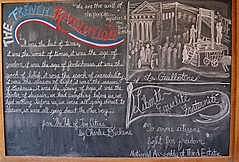 THE FRENCH REVOLUTION
"We are the will
of the people
It was the best of times, it was the
worst of times, it was the age of
wisdom, it was the age of foolishness, it was the
epoch of belief, it was the epoch of incredulity,
it was the season of Light, it was the season
of Darkness, it was the spring of hope, it was the
winter of despair, we had everything before us, we
had nothing before us, we were all going direct to
Heaven, we were all going direct the other way
from the Tale of Two Cities
by Charles Dickens
La Guillotine
Liberté
Egalité
Fraternité
citizens
fight for freedom
National Assembly of Third Estate